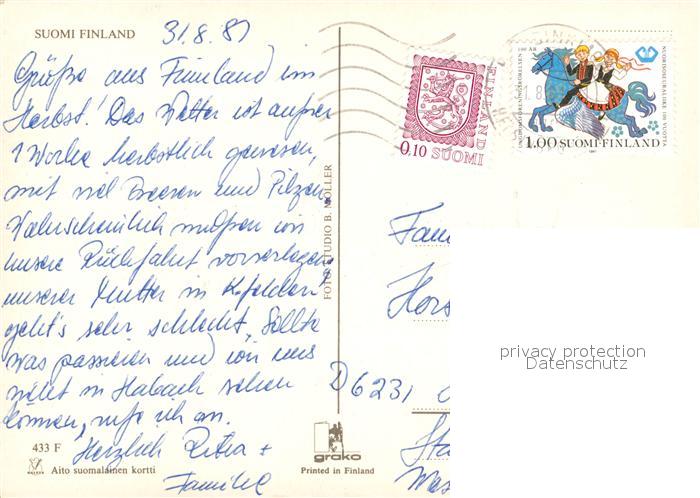 SUOMI FINLAND
31.8.81
Grüße aus Finnland im
Herbst! Das Wetter ist außer
1 Woche herbstlich gewesen,
mit viel Beeren und Pilzen.
Wahrscheinlich müssen wir
unsere Rückfahrt vorverlegen,
unserer Mutter in
geht's sehr schlecht. Sollte
was passieren und wir uns
nicht in Habach sehen
können, rufe ich an.
Herzlich Petra +
Familie
433 F
Aito suomalainen kortti
FOTO STUDIO B. MÖLLER
grako
Printed in Finland
0.10 SUOMI
FINLAND
UNGDOMSFÖRENINGSRÖRELSEN 100 ÅR
NUORISOSEURALIIKE 100 VUOTTA
1.00 SUOMI-FINLAND
1981
Fam
Hors
D 6231
privacy protection
Datenschutz